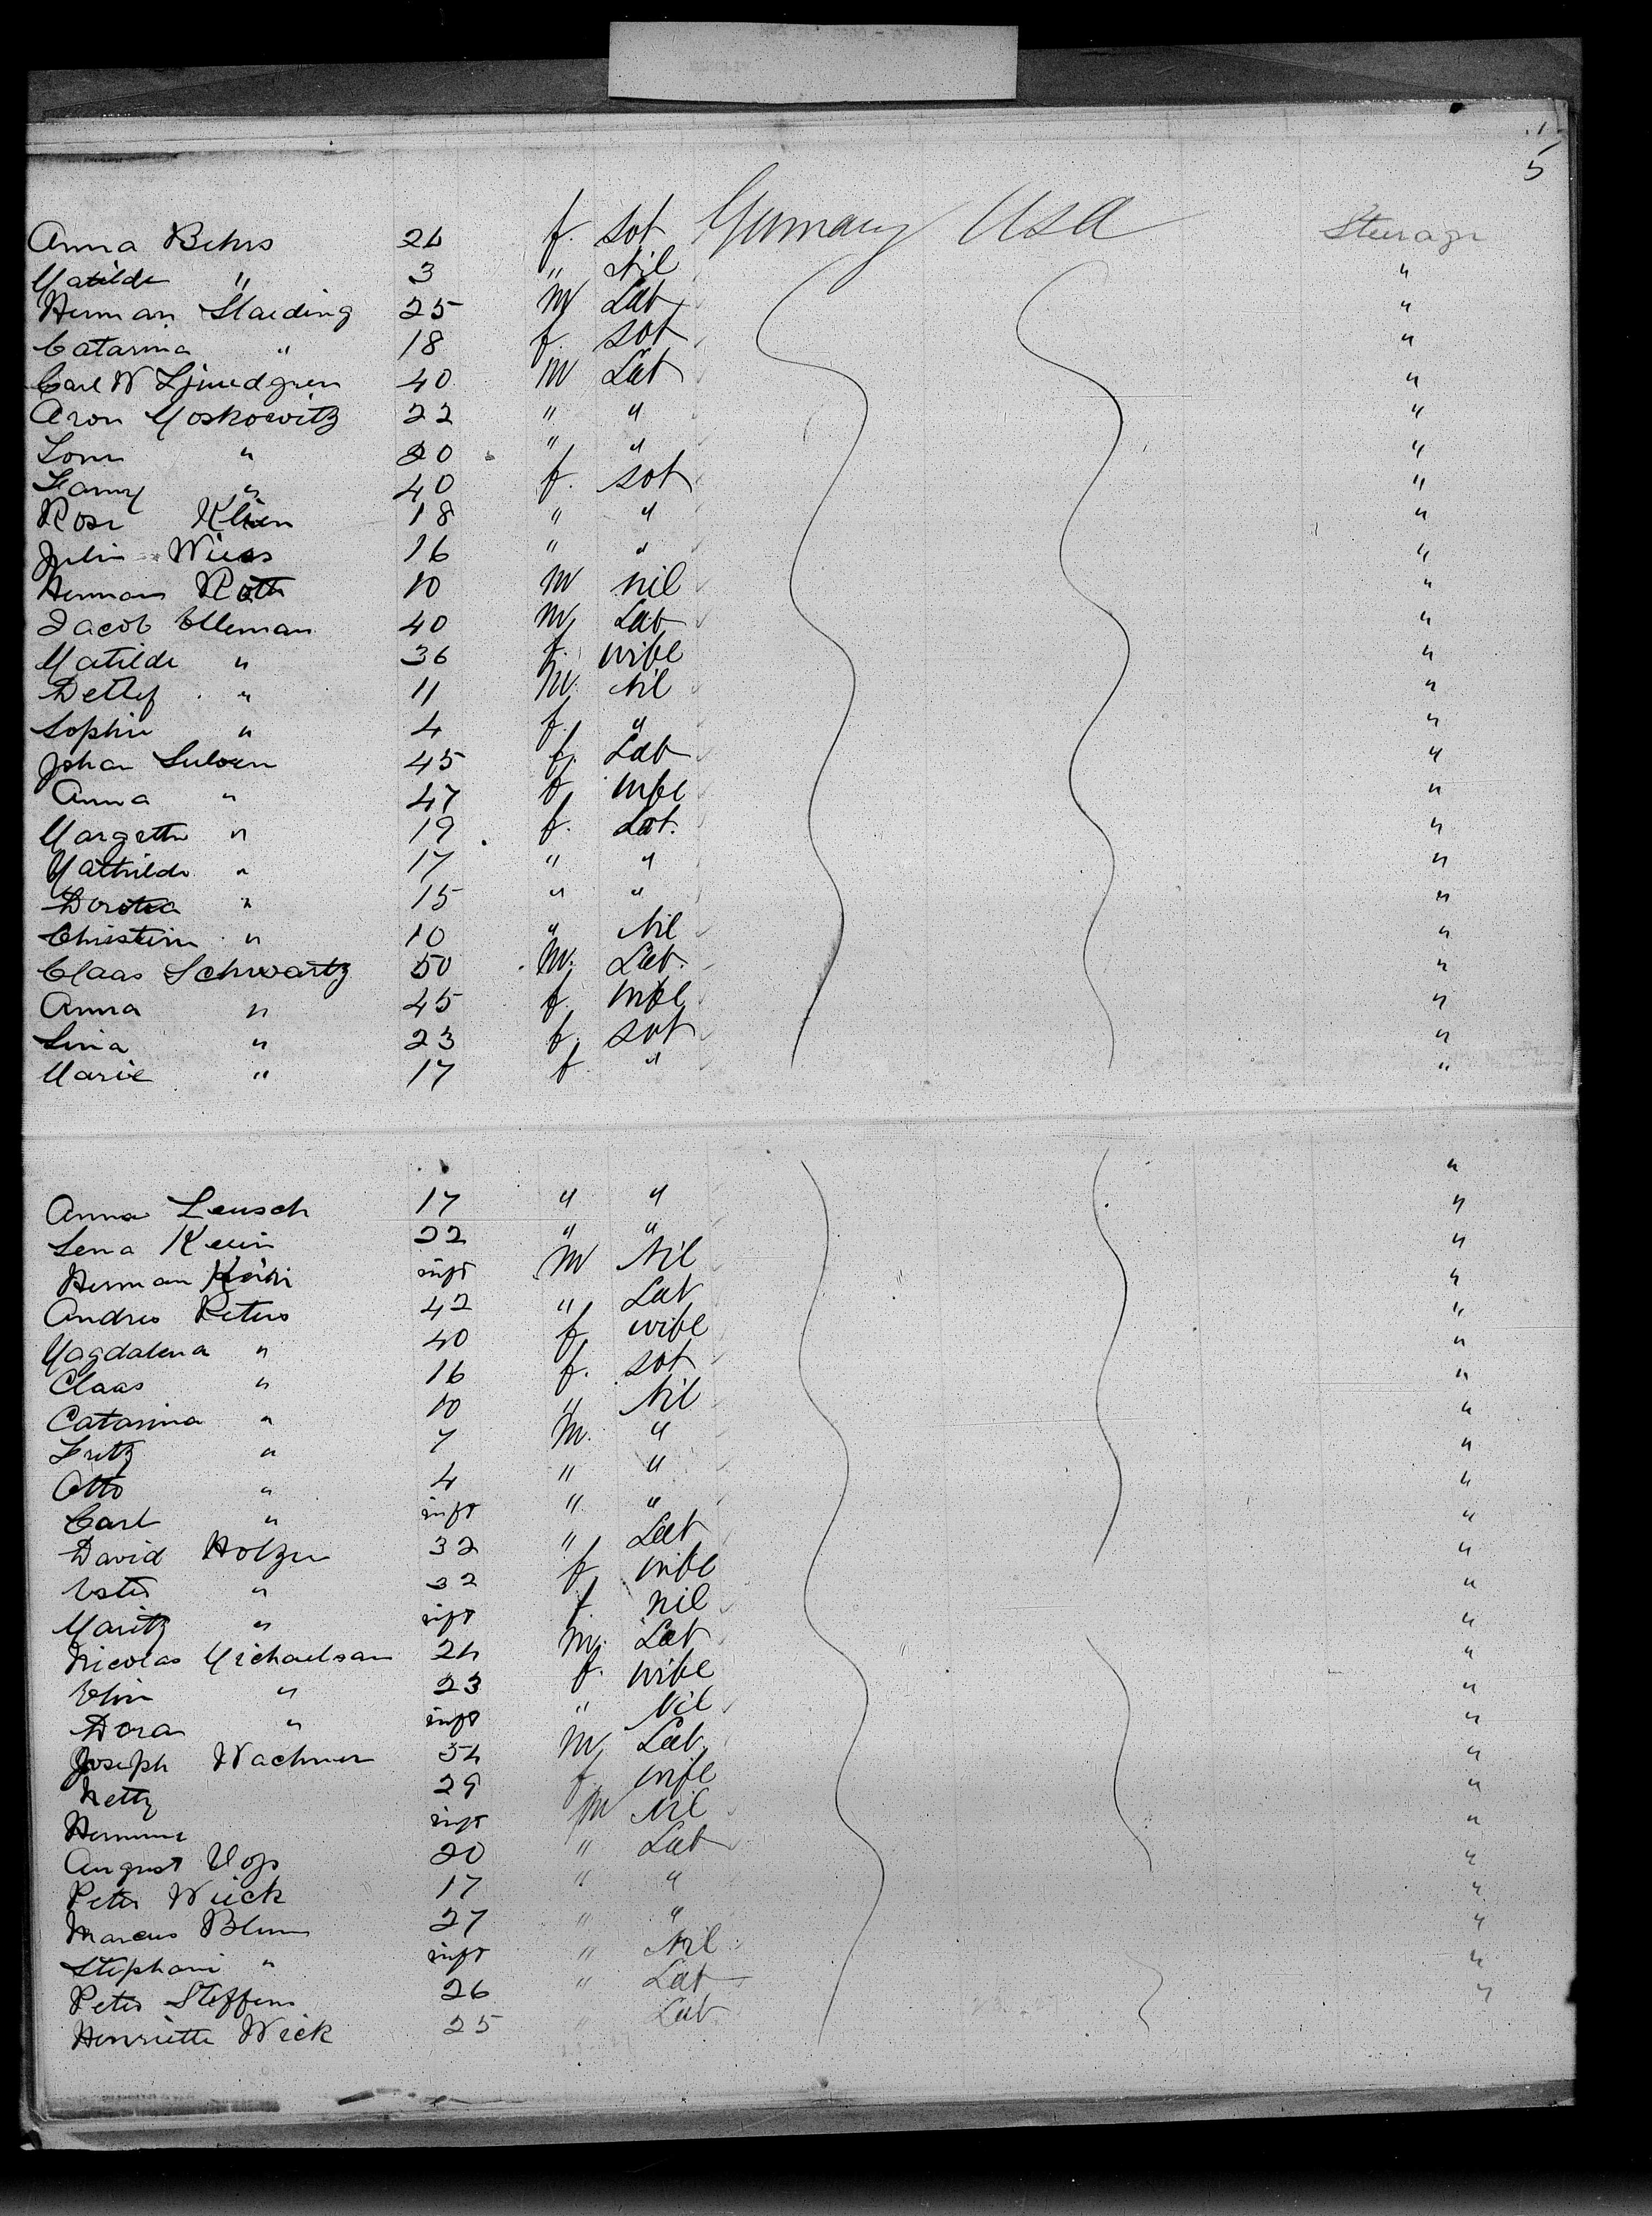 5
Anna Behrs 24 f. sot Germany USA Steerage
Matilde " 3 " Nil "
Herman Staeding 25 M Lab "
Catarina " 18 f. sot "
Carl W Ljundgren 40 M Lab "
Aron Moskowitz 22 " " "
" 20 " " "
Fanny " 40 f. sot "
Rose Klien 18 " " "
Julie Wiess 16 " " "
Herman Roth 10 M nil "
Jacob Elleman 40 M Lab "
Matilde " 36 f. wife "
Detlef " 11 M. Nil "
Sophie " 4 f. " "
Johan 45 f. Lab "
Anna " 47 f. wife "
Margretha " 19 f. Lab. "
Mathilde " 17 " " "
Dorotea " 15 " " "
Christine " 10 " Nil "
Claas Schwartz 50 M. Lab. "
Anna " 45 f. wife "
Lina " 23 f. sot "
Marie " 17 f " "
"
Anna Leusch 17 " " "
Lena 22 " " "
Herman inft M Nil "
Andres Peters 42 " Lab "
Magdalena " 40 f. wife "
Claas " 16 f. sot "
Catarina " 10 " Nil "
Fritz " 7 M. " "
Otto " 4 " " "
Carl " inft " " "
David Holzer 32 " Lab "
Ester " 32 f wife "
Moritz " inft f. nil "
Nicolas Michaelsan 24 M. Lab "
Eline " 23 f. wife "
Dora " inft " Nil "
Joseph Wachner 34 M Lab. "
Netty 29 f wife "
inft M Nil "
August Vop 20 " Lab "
Peter Wieck 17 " " "
Marcus Blum 27 " " "
Stephani " inft " Nil "
Peter Steffens 26 " Lab "
Henriette Wiek 25 " Lab